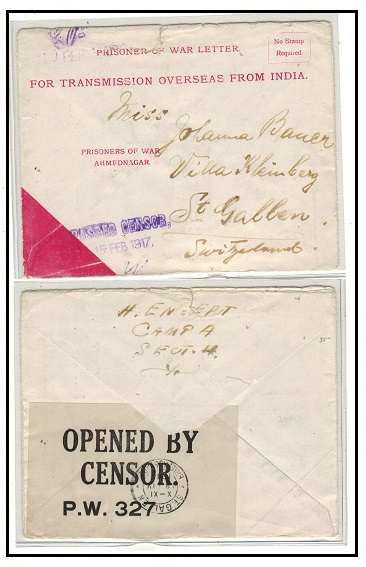 PRISONER OF WAR LETTER
No Stamp
Required.
FOR TRANSMISSION OVERSEAS FROM INDIA.
Miss
Johanna Bauer
PRISONERS OF WAR
AHMEDNAGAR.
Villa Kleinberg
St Gallen.
PASSED CENSOR.
FEB 1917.
Switzerland.
H. ENGERT
CAMP A
SECT. 4.
OPENED BY
CENSOR.
P.W. 327
ST. GALLEN
X-XI